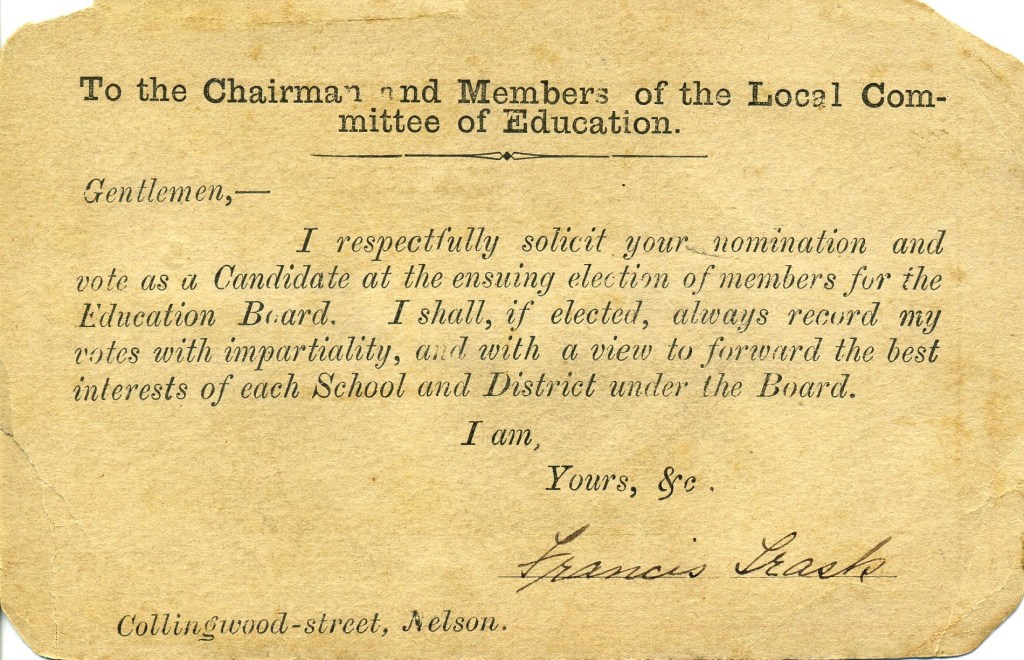 To the Chairman and Members of the Local Com-
mittee of Education.
Gentlemen,—
I respectfully solicit your nomination and
vote as a Candidate at the ensuing election of members for the
Education Board. I shall, if elected, always record my
votes with impartiality, and with a view to forward the best
interests of each School and District under the Board.
I am,
Yours, &c.
Francis Trask
Collingwood-street, Nelson.